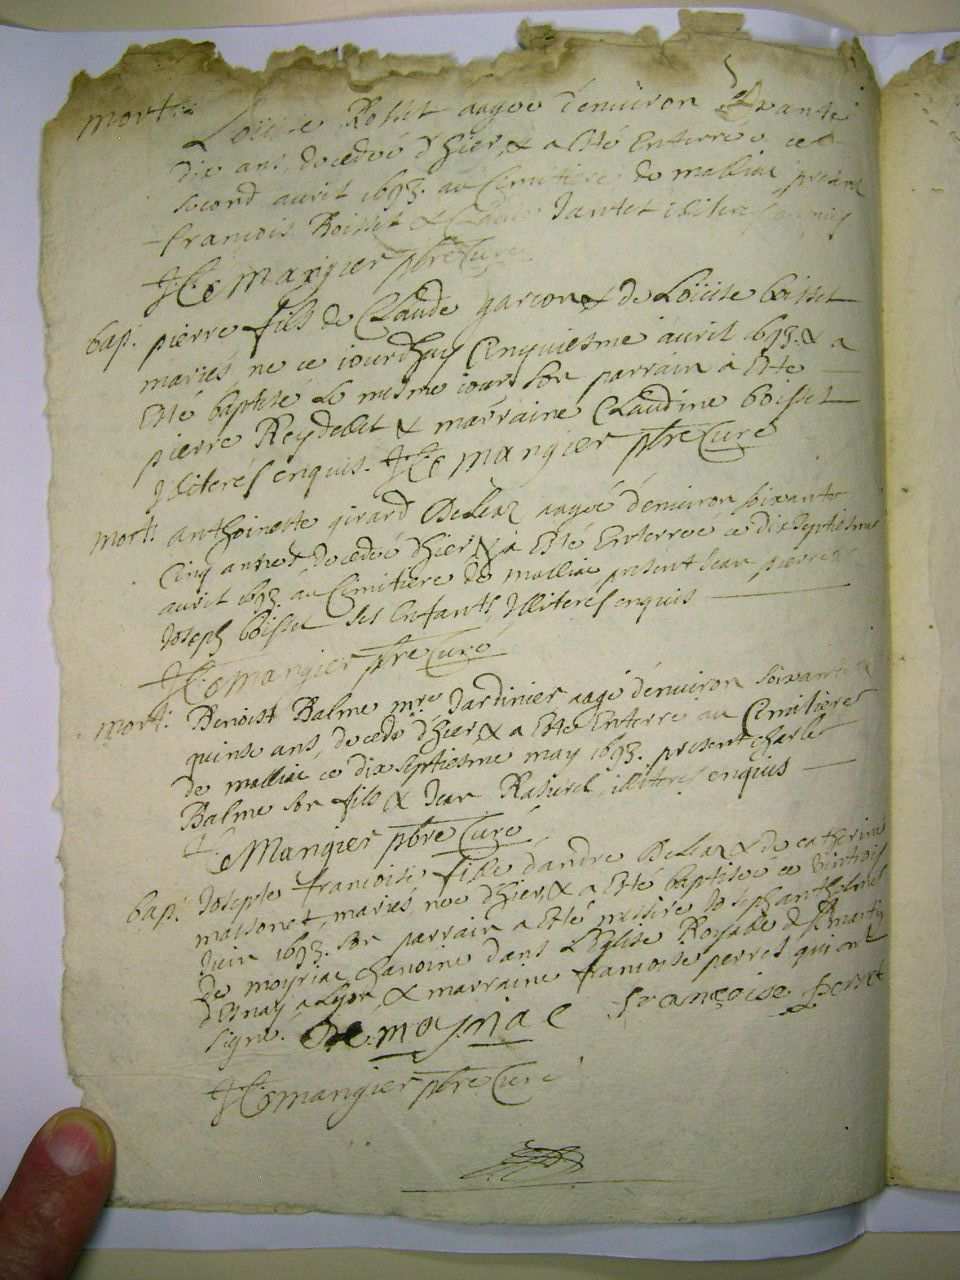 mort:
Loüise Rosset aagee d'enuiron
dix ans, decedee d'hier, & a esté Enterree ce
second auril 1693. au Cimitiere de malliac present
francois Boisset & Claude Jantet
mangier pbre Curé
bap: pierre fils de Claude garcon & de Loüise boisset
mariés, né ce iourdhuy Cinquiesme auril 1693. & a
Esté baptisé le mesme iour, son parrain à Esté
pierre Reydellet & marraine Claudine boisset
Jlliterés enquis. mangier pbre Curé
mort: anthoinette girard Deleaz aagée d'enuiron soixante
Cinq annees decedée d'hier, & à Esté Enterreé ce dix septiesme
auril 1693. au Cimitiere de malliac present Jean pierre
Joseph boisset ses Enfants, Jlliterés enquis
mangier pbre Curé
mort: Benoist Balme mre Jardinier aagé d'enuiron soixante
quinse ans, decedé d'hier, & a Esté Enterré au Cimitiere
de malliac ce dix septiesme may 1693. present charle
Balme son fils & Jean Ra illiterés enquis
Mangier pbre Curé
bap: Josepte francoise fille d'andre Deleaz & de catherine
massonet, mariés, née d'hier, & a Esté baptiseé ce
Juin 1693. son parrain a Esté messire Joseph anthelme
de moyriac chanoine dans L'Eglise Royale de St martin
d'Esnay a Lyon, & marraine francoise perret qui ont
signé. De moyriac françoise perret
mangier pbre Curé